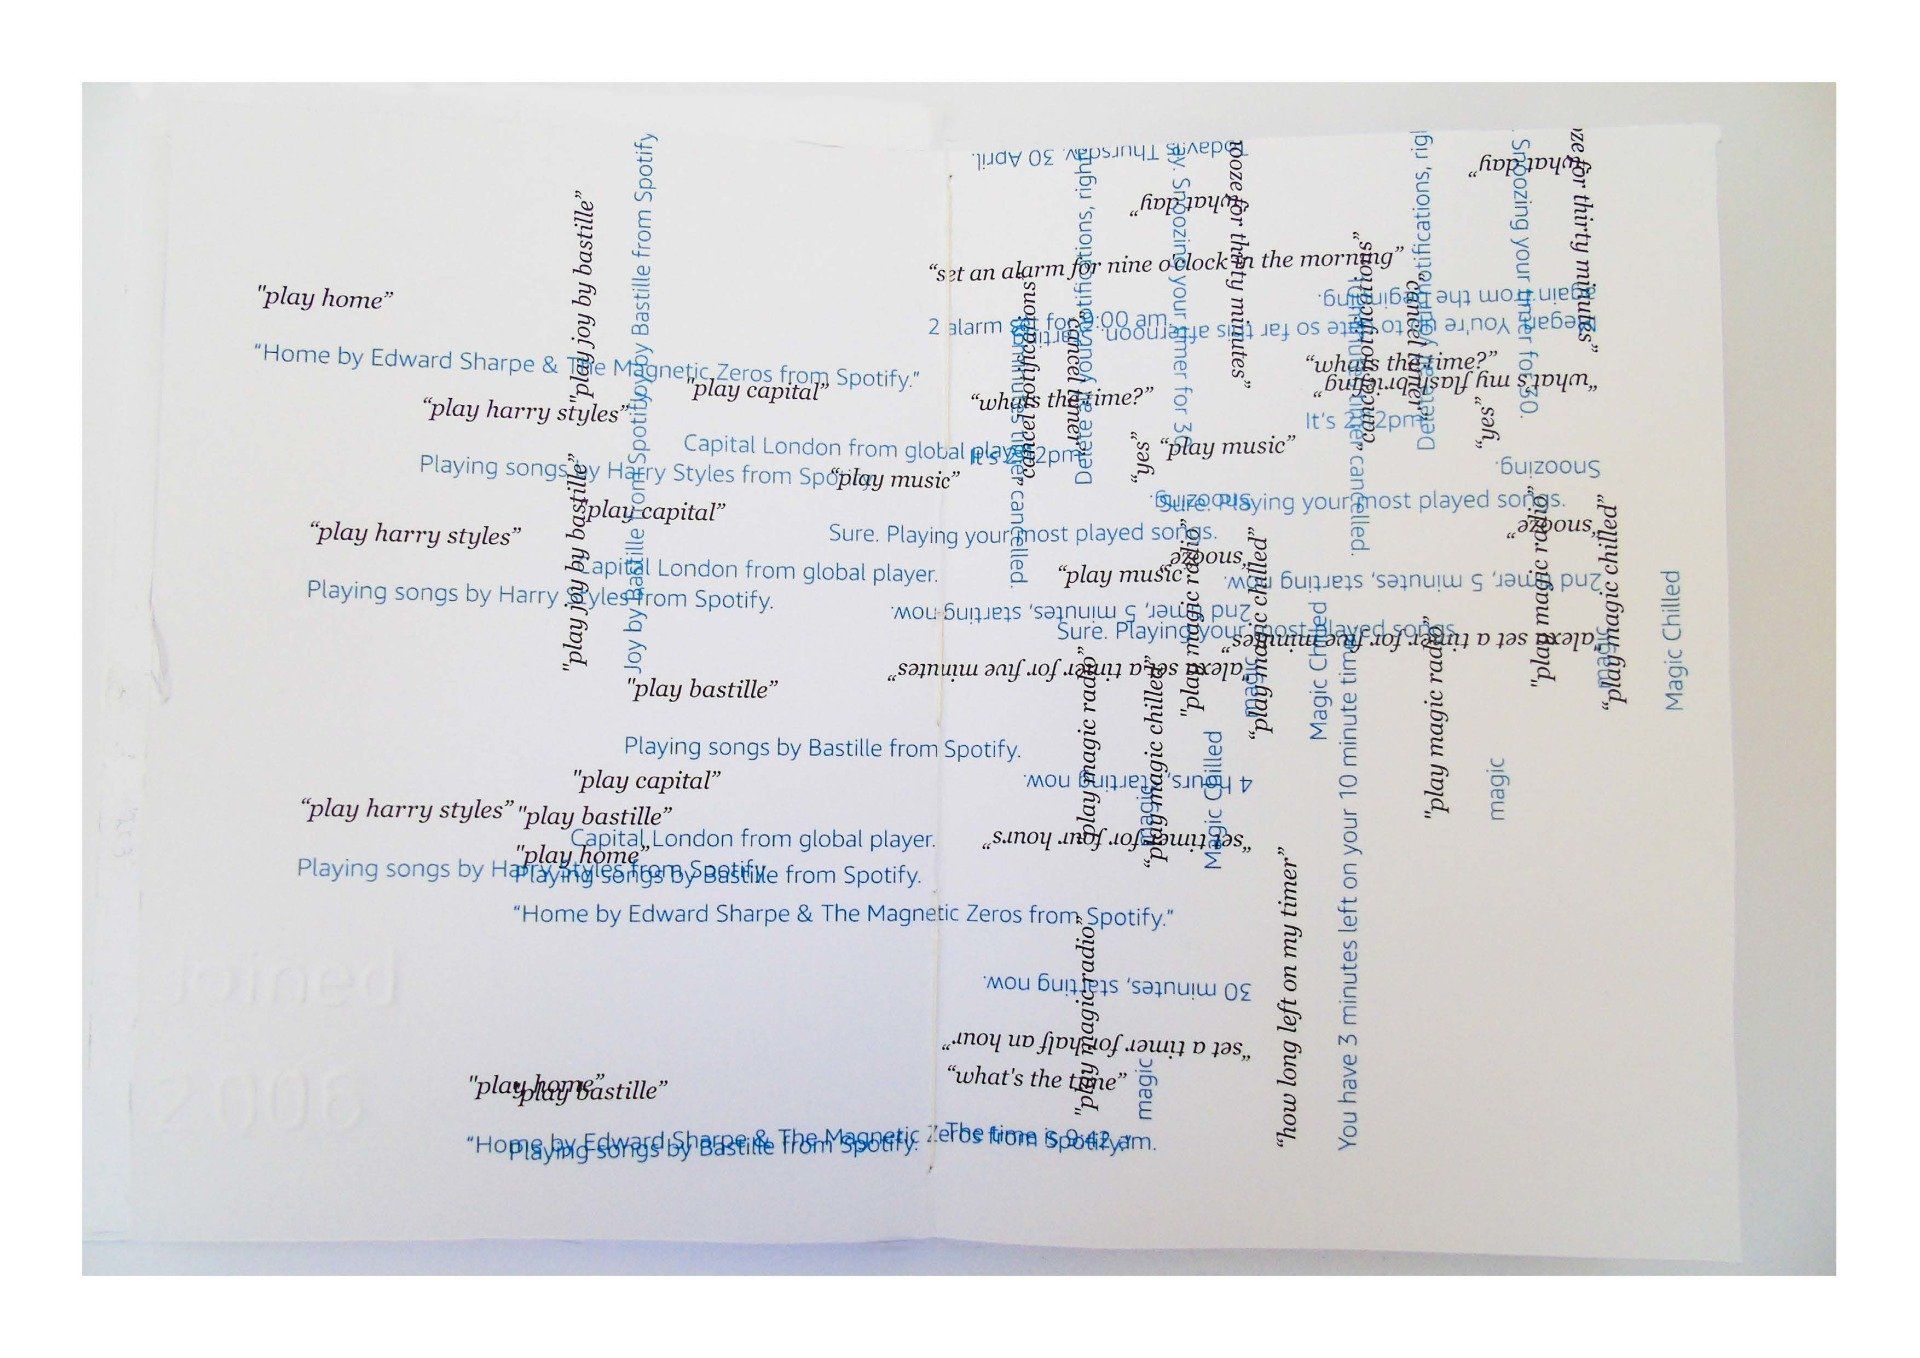 "play joy by bastille”
Joy by Bastille from Spotify
"play home”
“Home by Edward Sharpe & The Magnetic Zeros from Spotify.”
"play capital”
“play harry styles”
Capital London from global player.
Playing songs by Harry Styles from Spotify.
"play joy by bastille”
Joy by Bastille from Spotify
"play capital”
“play harry styles”
Capital London from global player.
Playing songs by Harry Styles from Spotify.
"play bastille”
Playing songs by Bastille from Spotify.
"play capital”
“play harry styles”
"play bastille”
Capital London from global player.
"play home”
Playing songs by Harry Styles from Spotify.
Playing songs by Bastille from Spotify.
“Home by Edward Sharpe & The Magnetic Zeros from Spotify.”
"play home”
"play bastille”
“Home by Edward Sharpe & The Magnetic Zeros from Spotify.”
Playing songs by Bastille from Spotify.
Today is Thursday. 30 April.
“what day”
“what day”
“set an alarm for nine o'clock in the morning”
2 alarm set for 9:00 am.
Delete your notifications, right
Snoozing your timer for 30
snooze for thirty minutes”
“cancel notifications”
“cancel timer”
timer cancelled
“what's the time?”
It's 2:12pm
“yes”
“play music”
“play music”
Sure. Playing your most played songs.
Sure. Playing your most played songs.
“play music”
Sure. Playing your most played songs.
again from the beginning.
You're up to date so far this afternoon. Starting
“what's my flash briefing”
“what's the time?”
It's 2:12pm
“cancel notifications”
“cancel timer”
timer cancelled.
Delete your notifications, rig
“yes”
Snoozing your timer for 30.
ze for thirty minutes”
Snoozing.
“snooze”
Snoozing.
“snooze”
2nd timer, 5 minutes, starting now.
“alexa set a timer for five minutes”
2nd timer, 5 minutes, starting now.
“alexa set a timer for five minutes”
"play magic radio”
magic
“play magic chilled”
Magic Chilled
"play magic radio”
magic
“play magic chilled”
Magic Chilled
"play magic radio”
magic
“play magic chilled”
Magic Chilled
"play magic radio”
magic
4 hours, starting now.
“set timer for four hours”
"play magic radio”
magic
30 minutes, starting now.
“set a timer for half an hour”
“what's the time”
The time is 9:42 am.
“how long left on my timer”
You have 3 minutes left on your 10 minute timer